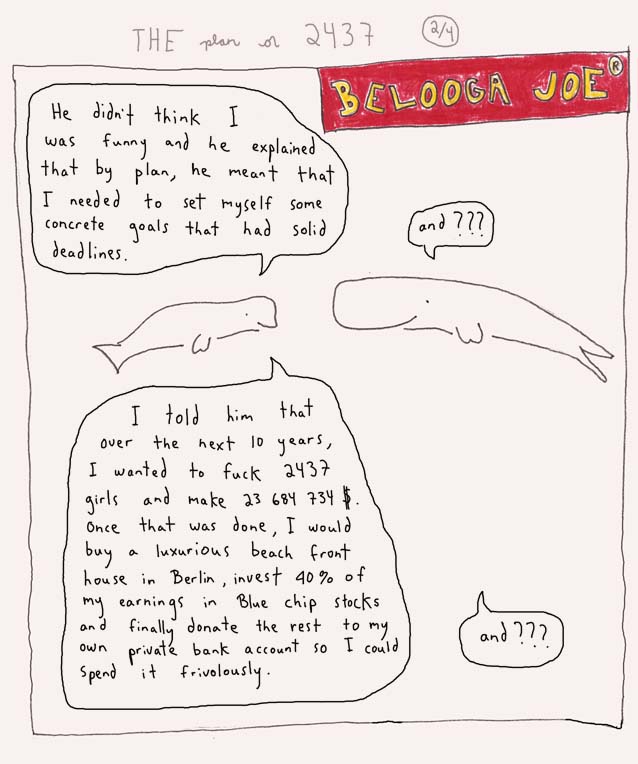 THE plan or 2437 2/4
BELOOGA JOE ®
He didn't think I
was funny and he explained
that by plan, he meant that
I needed to set myself some
concrete goals that had solid
deadlines.
and ???
I told him that
over the next 10 years,
I wanted to fuck 2437
girls and make 23 684 734 $.
Once that was done, I would
buy a luxurious beach front
house in Berlin, invest 40% of
my earnings in Blue chip stocks
and finally donate the rest to my
own private bank account so I could
spend it frivolously.
and ???